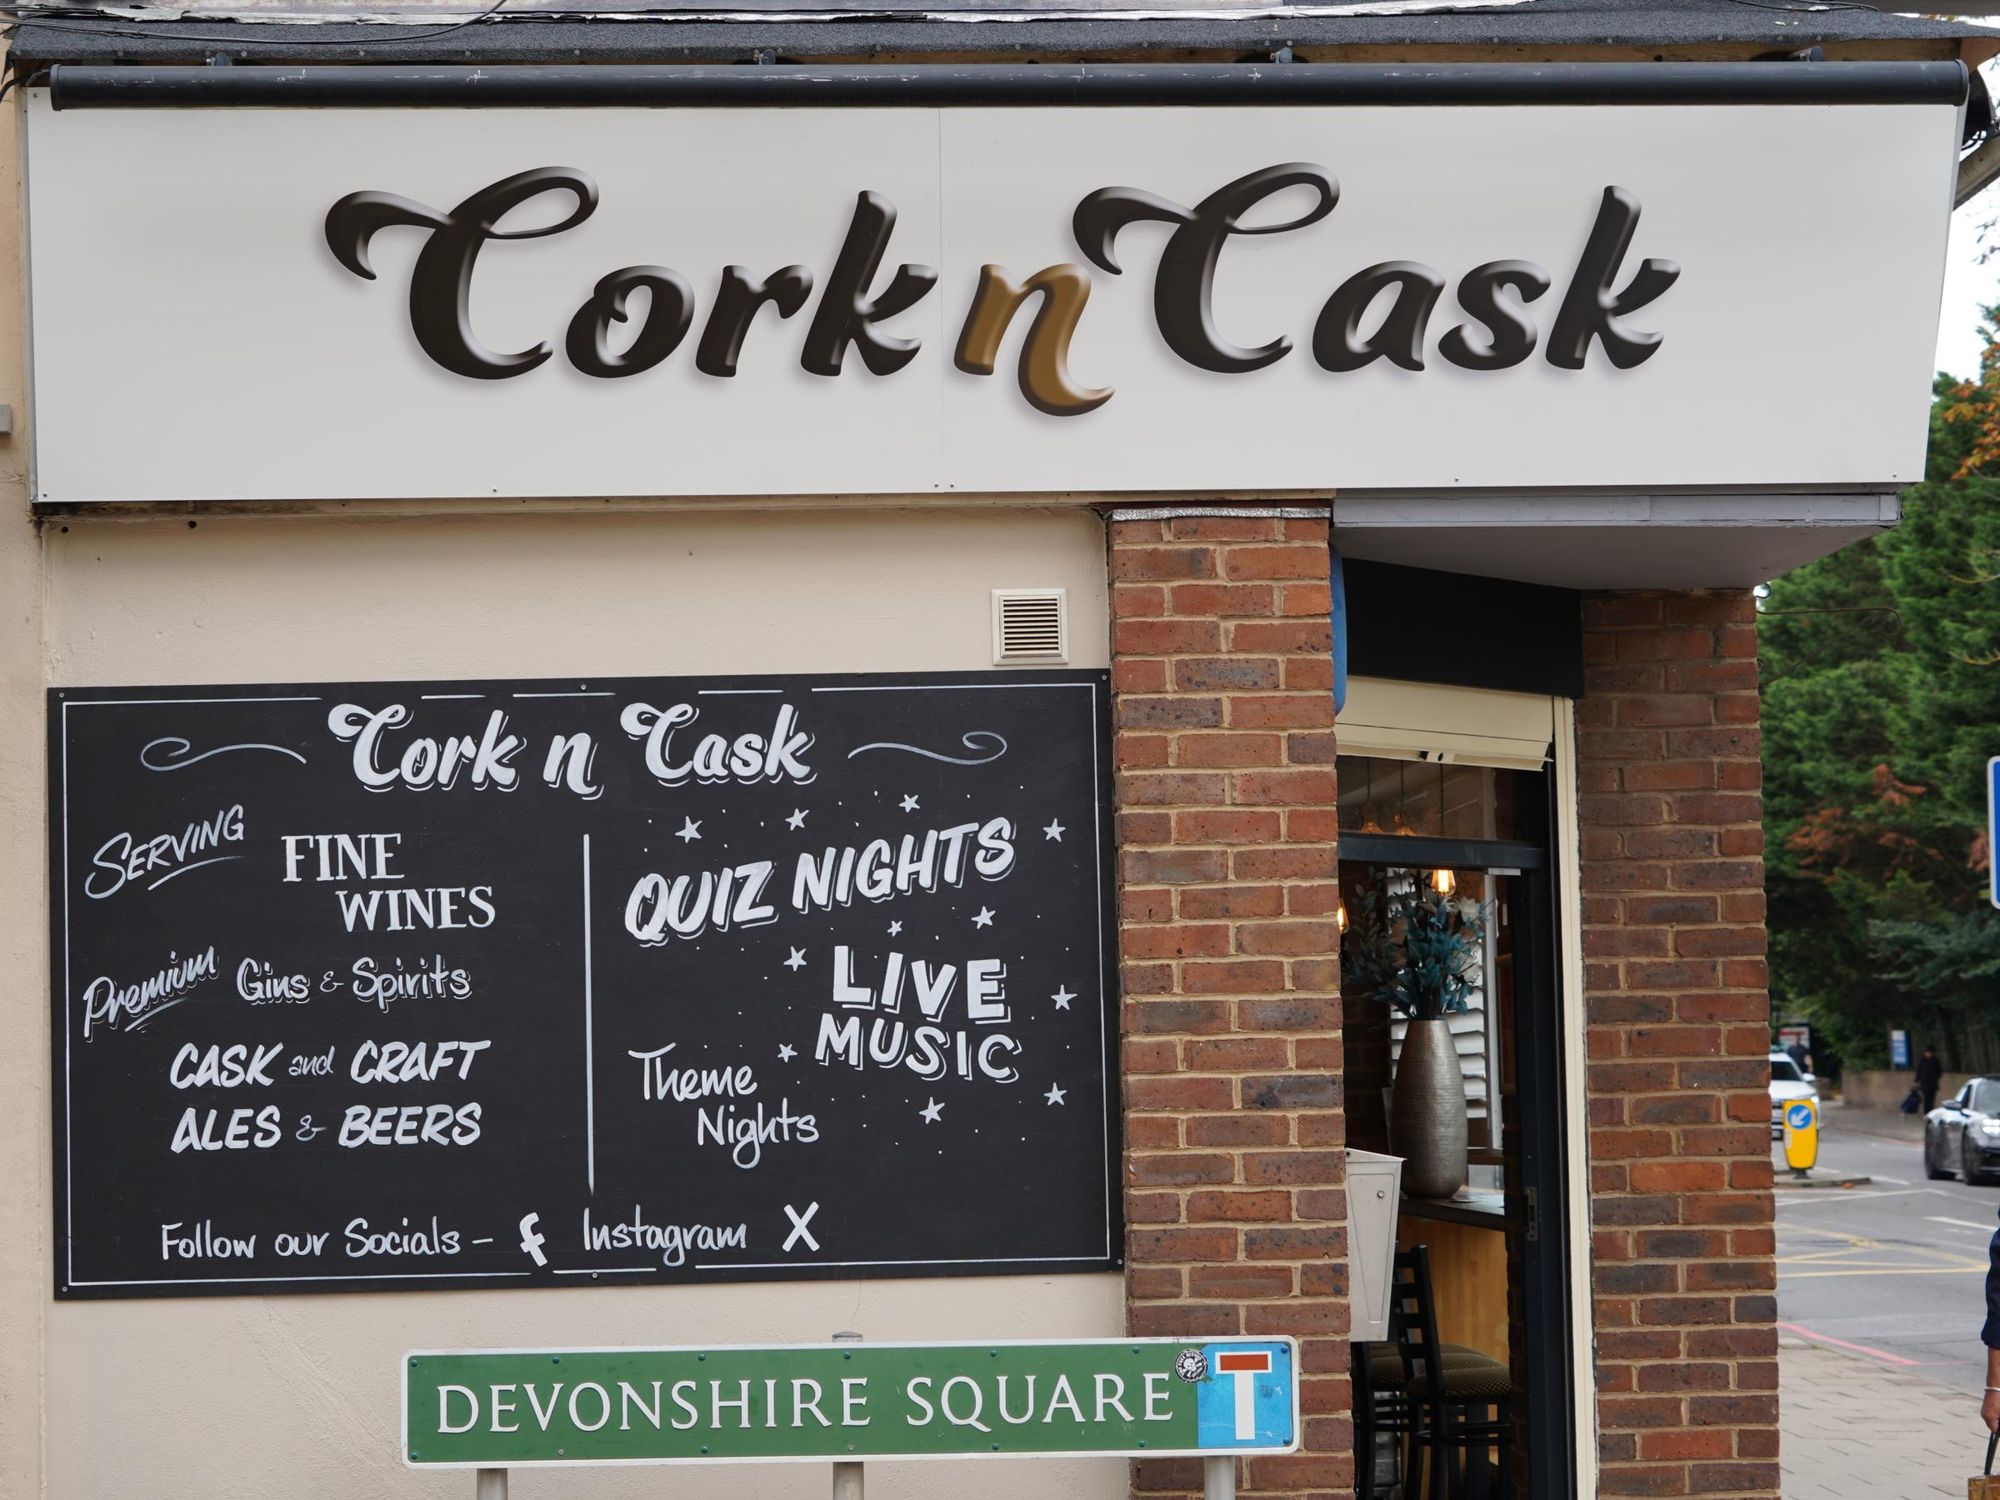 Cork n Cask
Cork n Cask
SERVING
FINE
WINES
Premium Gins & Spirits
CASK and CRAFT
ALES & BEERS
QUIZ NIGHTS
LIVE
MUSIC
Theme
Nights
Follow our Socials - f Instagram X
DEVONSHIRE SQUARE